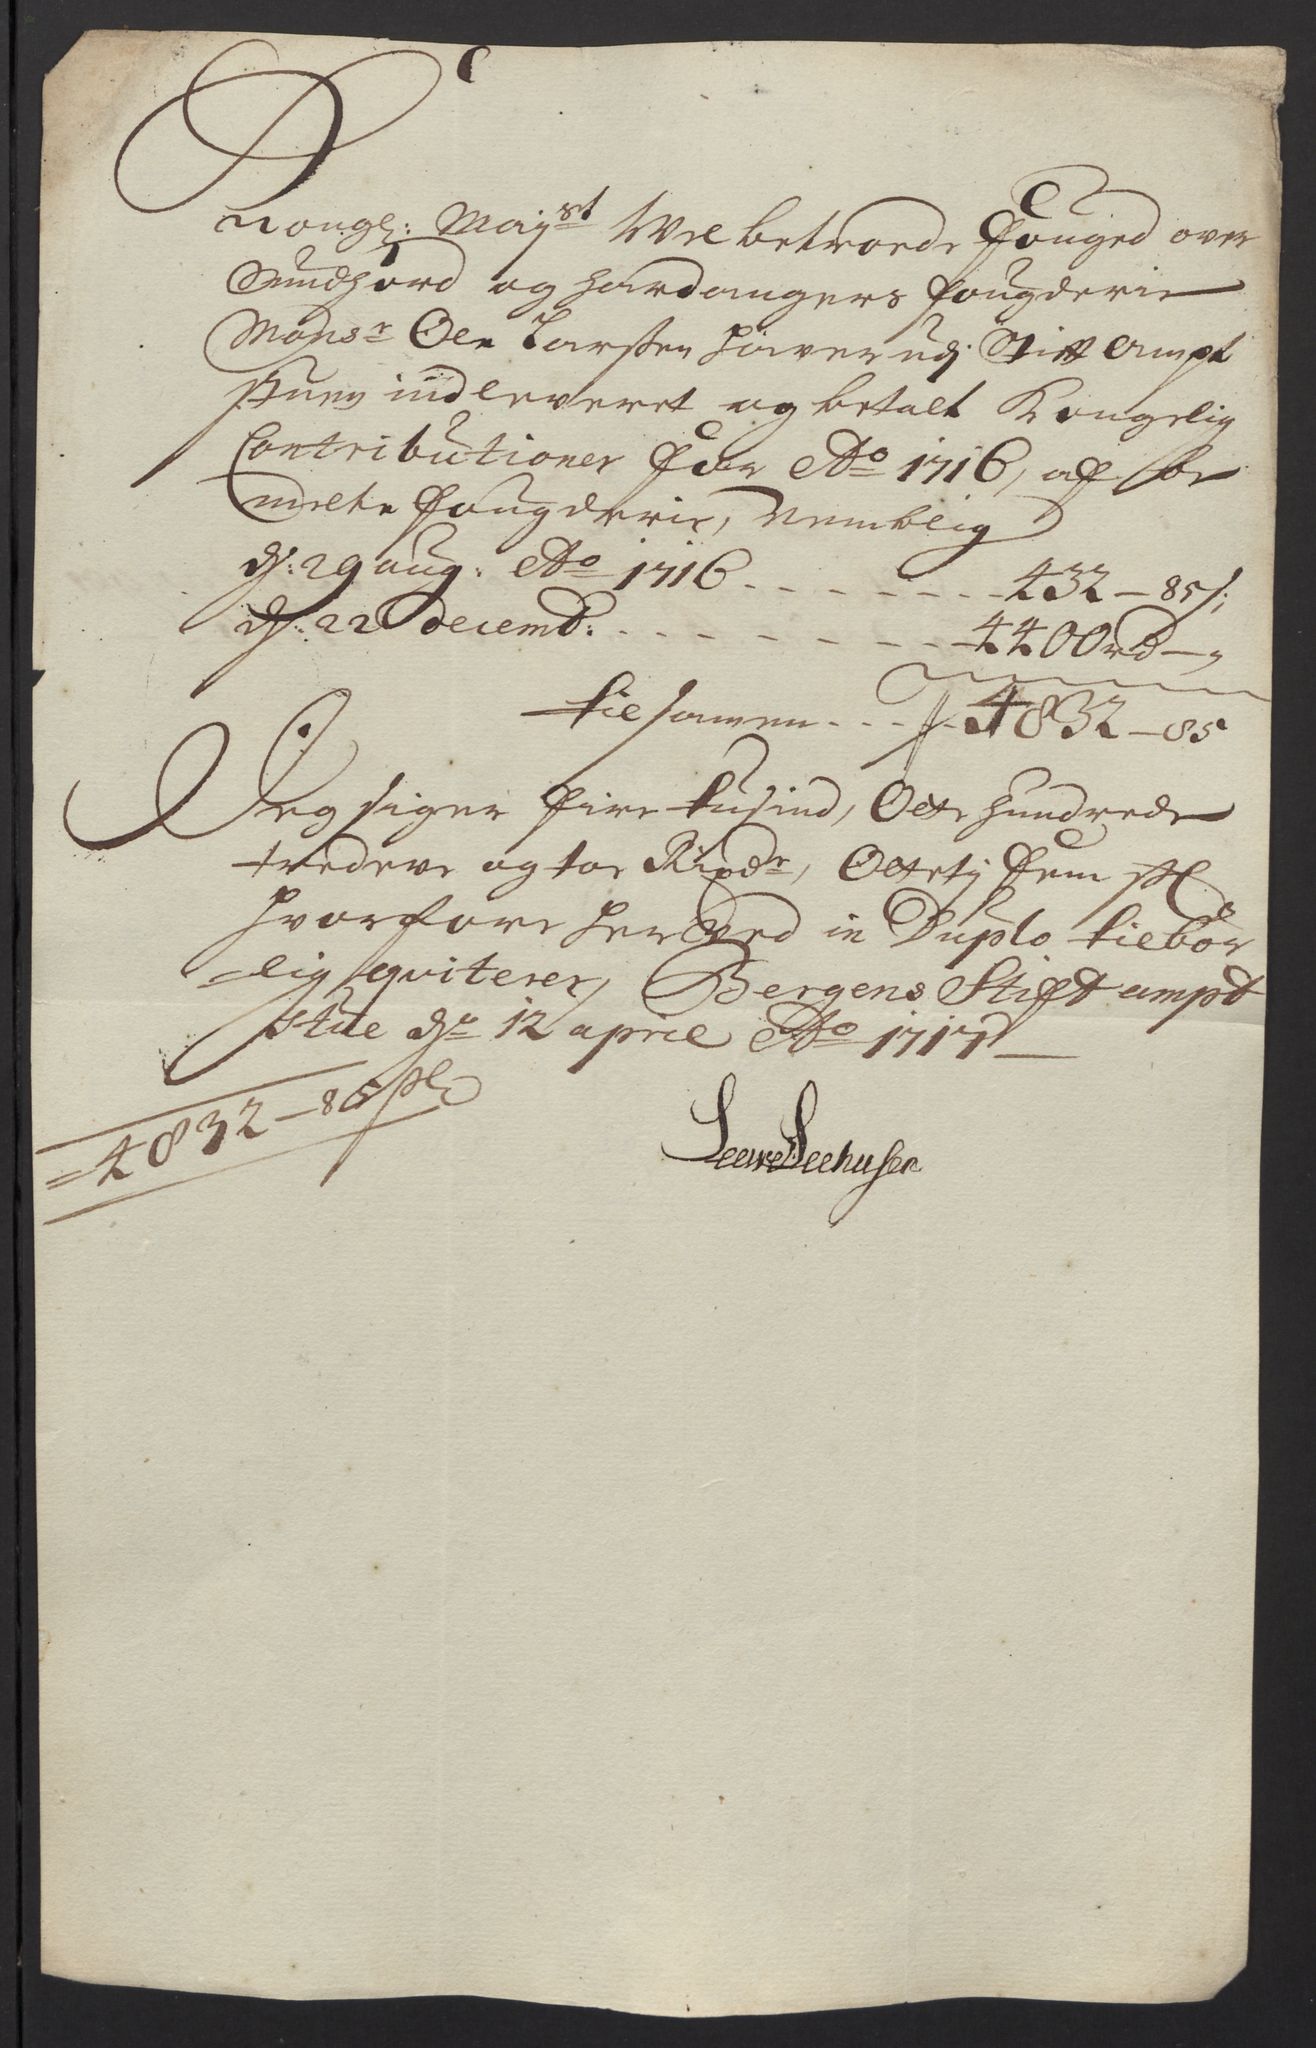 Kongl: Mayst Wel betroede Fouged over
Sundhord og Hardangers fougderie
Monsr Ole Larssen haver udj Stift Ampt
stuen indleveret og betalt Kongelig
Contributioner for Ao 1716, af be
melte fougderie, Nemblig
d: 29 aug: Ao 1716 - - - - - - - - 432 - 85 s;
d: 22 decemb: - - - - - - - - 4400 rd - ,
tilsamen - - - 4832 - 85
Jeg siger fire tusind, Otte hundrede
tredeve og toe Rixdr, Ottetj fem sk
hvorfore her Ved in Duplo tilbør
-lig qviterer, Bergens Stift ampt
stue dn 12 april Ao 1717
= 4832 - 85 sk
Leewe Seehusen